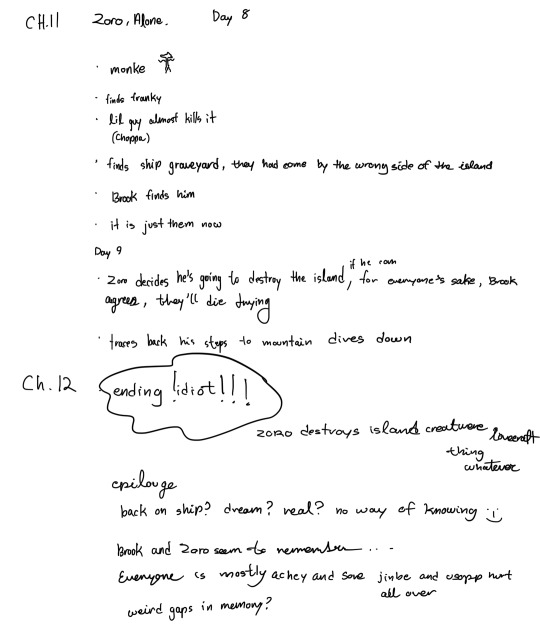 CH.11 Zoro, Alone. Day 8
· monke
· finds franky
· Lil guy almost kills it
(Choppa)
· finds ship graveyard, they had come by the wrong side of the island
· Brook finds him
· it is just them now
Day 9
if he can
· Zoro decides he's going to destroy the island, for everyone's sake, Brook
agrees, they'll die trying
· traces back his steps to mountain dives down
Ch.12 ending !idiot!!!
zoro destroys island creature lovecraft
thing
whatever
epilouge
back on ship? dream? real? no way of knowing :)
Brook and Zoro seem to remember ....
Everyone is mostly achey and sore jinbe and usopp hurt
all over
weird gaps in memory?